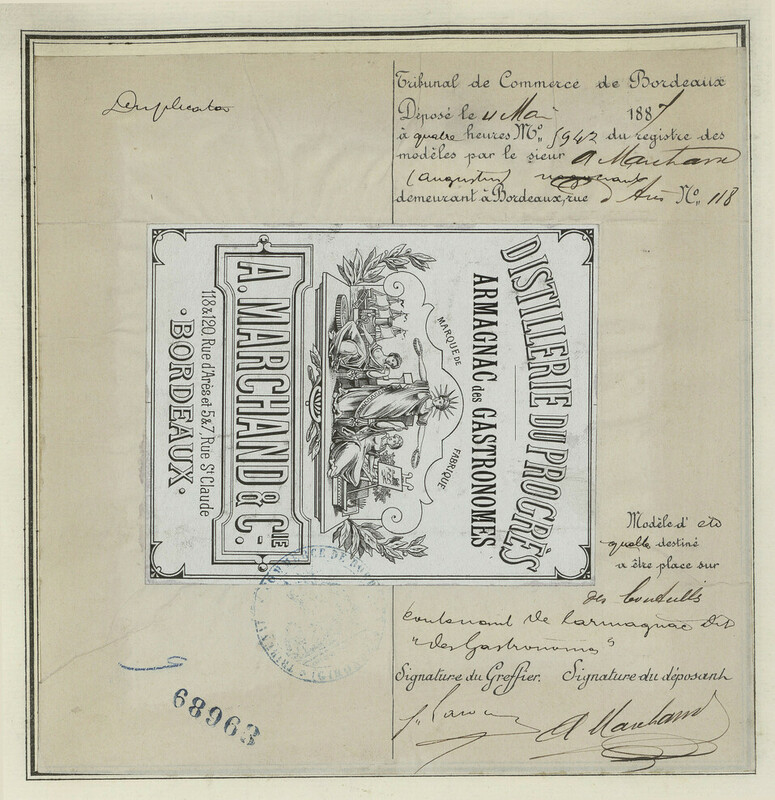 Duplicata
Tribunal de Commerce de Bordeaux
Déposé le 4 Mai 1887
à quatre heures Mo. 5942 du registre des
modèles par le sieur A Marchand
(Augustin)
demeurant à Bordeaux, rue d'Arès No. 118
DISTILLERIE DU PROGRÈS
ARMAGNAC des GASTRONOMES
MARQUE DE FABRIQUE
A. MARCHAND & CIE
118 & 120, Rue d'Arès et 5 & 7, Rue St Claude
· BORDEAUX ·
Modèle d'
destiné
a être place sur
des
contenant de l'armagnac dit
"des Gastronomes"
Signature du Greffier. Signature du déposant
A Marchand
68963